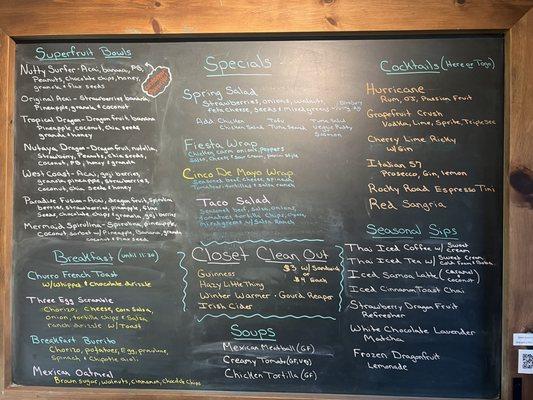 Superfruit Bowls
Nutty Surfer - Acai, banana, PB,
Peanuts, Chocolate chips, honey,
granola & flax seeds
Original Acai - Strawberries, banana
Pineapple, granola & coconut
Tropical Dragon - Dragon fruit, banana
Pineapple, coconut, chia seeds
granola & honey
Nutaya Dragon - Dragon fruit, nutella,
Strawberry, Peanuts, Chia seeds,
coconut, PB, honey & granola
West Coast - Acai, goji berries,
granola, pineapple, strawberries,
coconut, chia seeds & honey
Paradise Fusion - Acai, dragon fruit, Spirulina
berries, strawberries, pineapple, flax
Seeds, chocolate chips & granola, goji berries
Mermaid Spirulina - Spirulina, pineapple,
coconut, & Pineapple, banana, granola
coconut & Flax seeds
Breakfast (until 11:30)
Churro French Toast
w/ whipped & chocolate drizzle
Three Egg Scramble
Chorizo, Cheese, corn Salsa,
onion, tortilla chips & Salsa
ranch drizzle w/ Toast
Breakfast Burrito
Chorizo, potatoes, Egg, provolone,
Spinach & Chipotle aioli
Mexican Oatmeal
Brown sugar, walnuts, cinnamon, chocolate chips
Specials
Spring Salad
Strawberries, onions, walnuts
feta cheese, seeds & mixed greens
Add: Chicken Tofu Tuna Salad
Chicken Salad Tuna Seared Veggie Patty
Salmon
Fiesta Wrap
Chicken, corn, onions, peppers
Salsa, cheese & sour cream,
Cinco De Mayo Wrap
Seasoned beef, cheese, spinach,
Tomatoes, tortillas & salsa ranch
Taco Salad
Seasoned beef, Salsa, onions,
tomatoes, tortilla chips, cheese,
mixed greens w/ Salsa Ranch
Closet Clean Out
Guinness
Hazy Little Thing
Winter Warmer - Gourd Reaper
Irish Cider
$3 w/ Sandwich
or
$4 each
Soups
Mexican Meatball (GF)
Creamy Tomato (GF, Veg)
Chicken Tortilla (GF)
Cocktails (Here or Togo)
Hurricane
Rum, OJ, Passion Fruit
Grapefruit Crush
Vodka, Lime, Sprite, Triple Sec
Cherry Lime Ricky
w/ Gin
Italian 57
Prosecco, Gin, lemon
Rocky Road Espresso Tini
Red Sangria
Seasonal Sips
Thai Iced Coffee w/ Sweet
cream
Thai Iced Tea w/ Sweet Cream
Cold Foam & Boba
Iced Samoa Latte (Caramel)
Coconut
Iced Cinnamon Toast Chai
Strawberry Dragon Fruit
Refresher
White Chocolate Lavender
Matcha
Frozen Dragonfruit
Lemonade